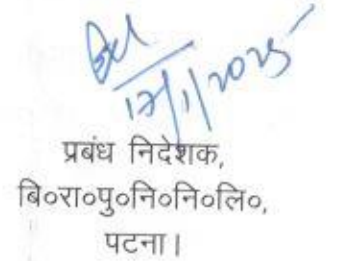 17/1/2025
प्रबंध निदेशक,
बि०रा०पु०नि०नि०लि०,
पटना।